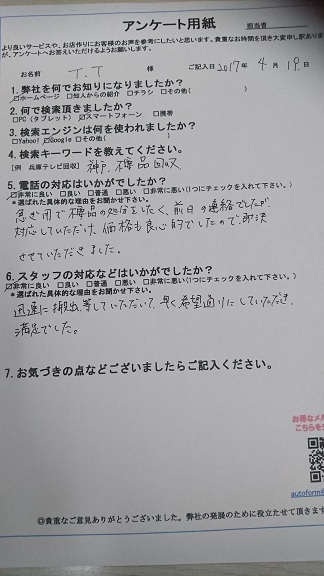 アンケート用紙
担当者
より良いサービスや、お店作りにお客様のお声を参考にしたいと思います。貴重なお時間を頂き大変申し訳あり
が、アンケートへお答えいただけるようお願いします。
お名前 T.T 様 ご記入日 2017年 4月 19日
1. 弊社を何でお知りになりましたか？
☑ホームページ □知人からの紹介 □チラシ □その他( )
2. 何で検索頂きましたか？
□PC（タブレット） ☑スマートフォーン □携帯
3. 検索エンジンは何を使われましたか？
□Yahoo! ☑Google □その他( )
4. 検索キーワードを教えてください。
[例 兵庫テレビ回収] 神戸 不用品回収
5. 電話の対応はいかがでしたか？
☑非常に良い □良い □普通 □悪い □非常に悪い(1つにチェックを入れて下さい。)
*選ばれた具体的な理由をお聞かせ下さい。
急ぎ用で 品の処分をしたく、前日の連絡でしたが、
対応していただけ、価格も良心的でしたので、即決
させていただきました。
6. スタッフの対応などはいかがでしたか？
☑非常に良い □良い □普通 □悪い □非常に悪い(1つにチェックを入れて下さい。)
*選ばれた具体的な理由をお聞かせ下さい。
迅速に搬出等していただいて、早く希望通りにしていただき、
満足でした。
7. お気づきの点などございましたらご記入ください。
お得なメ
こちらを
autoform@
◎貴重なご意見ありがとうございました。弊社の発展のために役立たせて頂きます